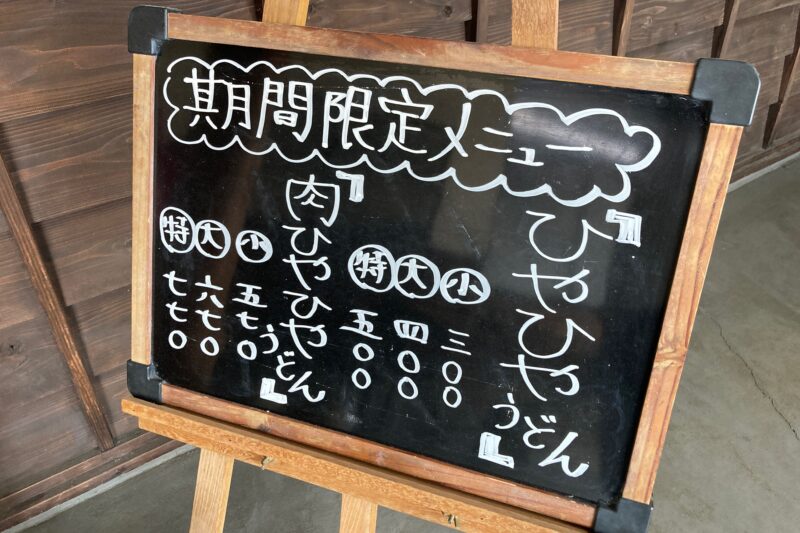 期間限定メニュー
『ひやひやうどん』
小 三〇〇
大 四〇〇
特 五〇〇
『肉ひやひやうどん』
小 五七〇
大 六七〇
特 七七〇